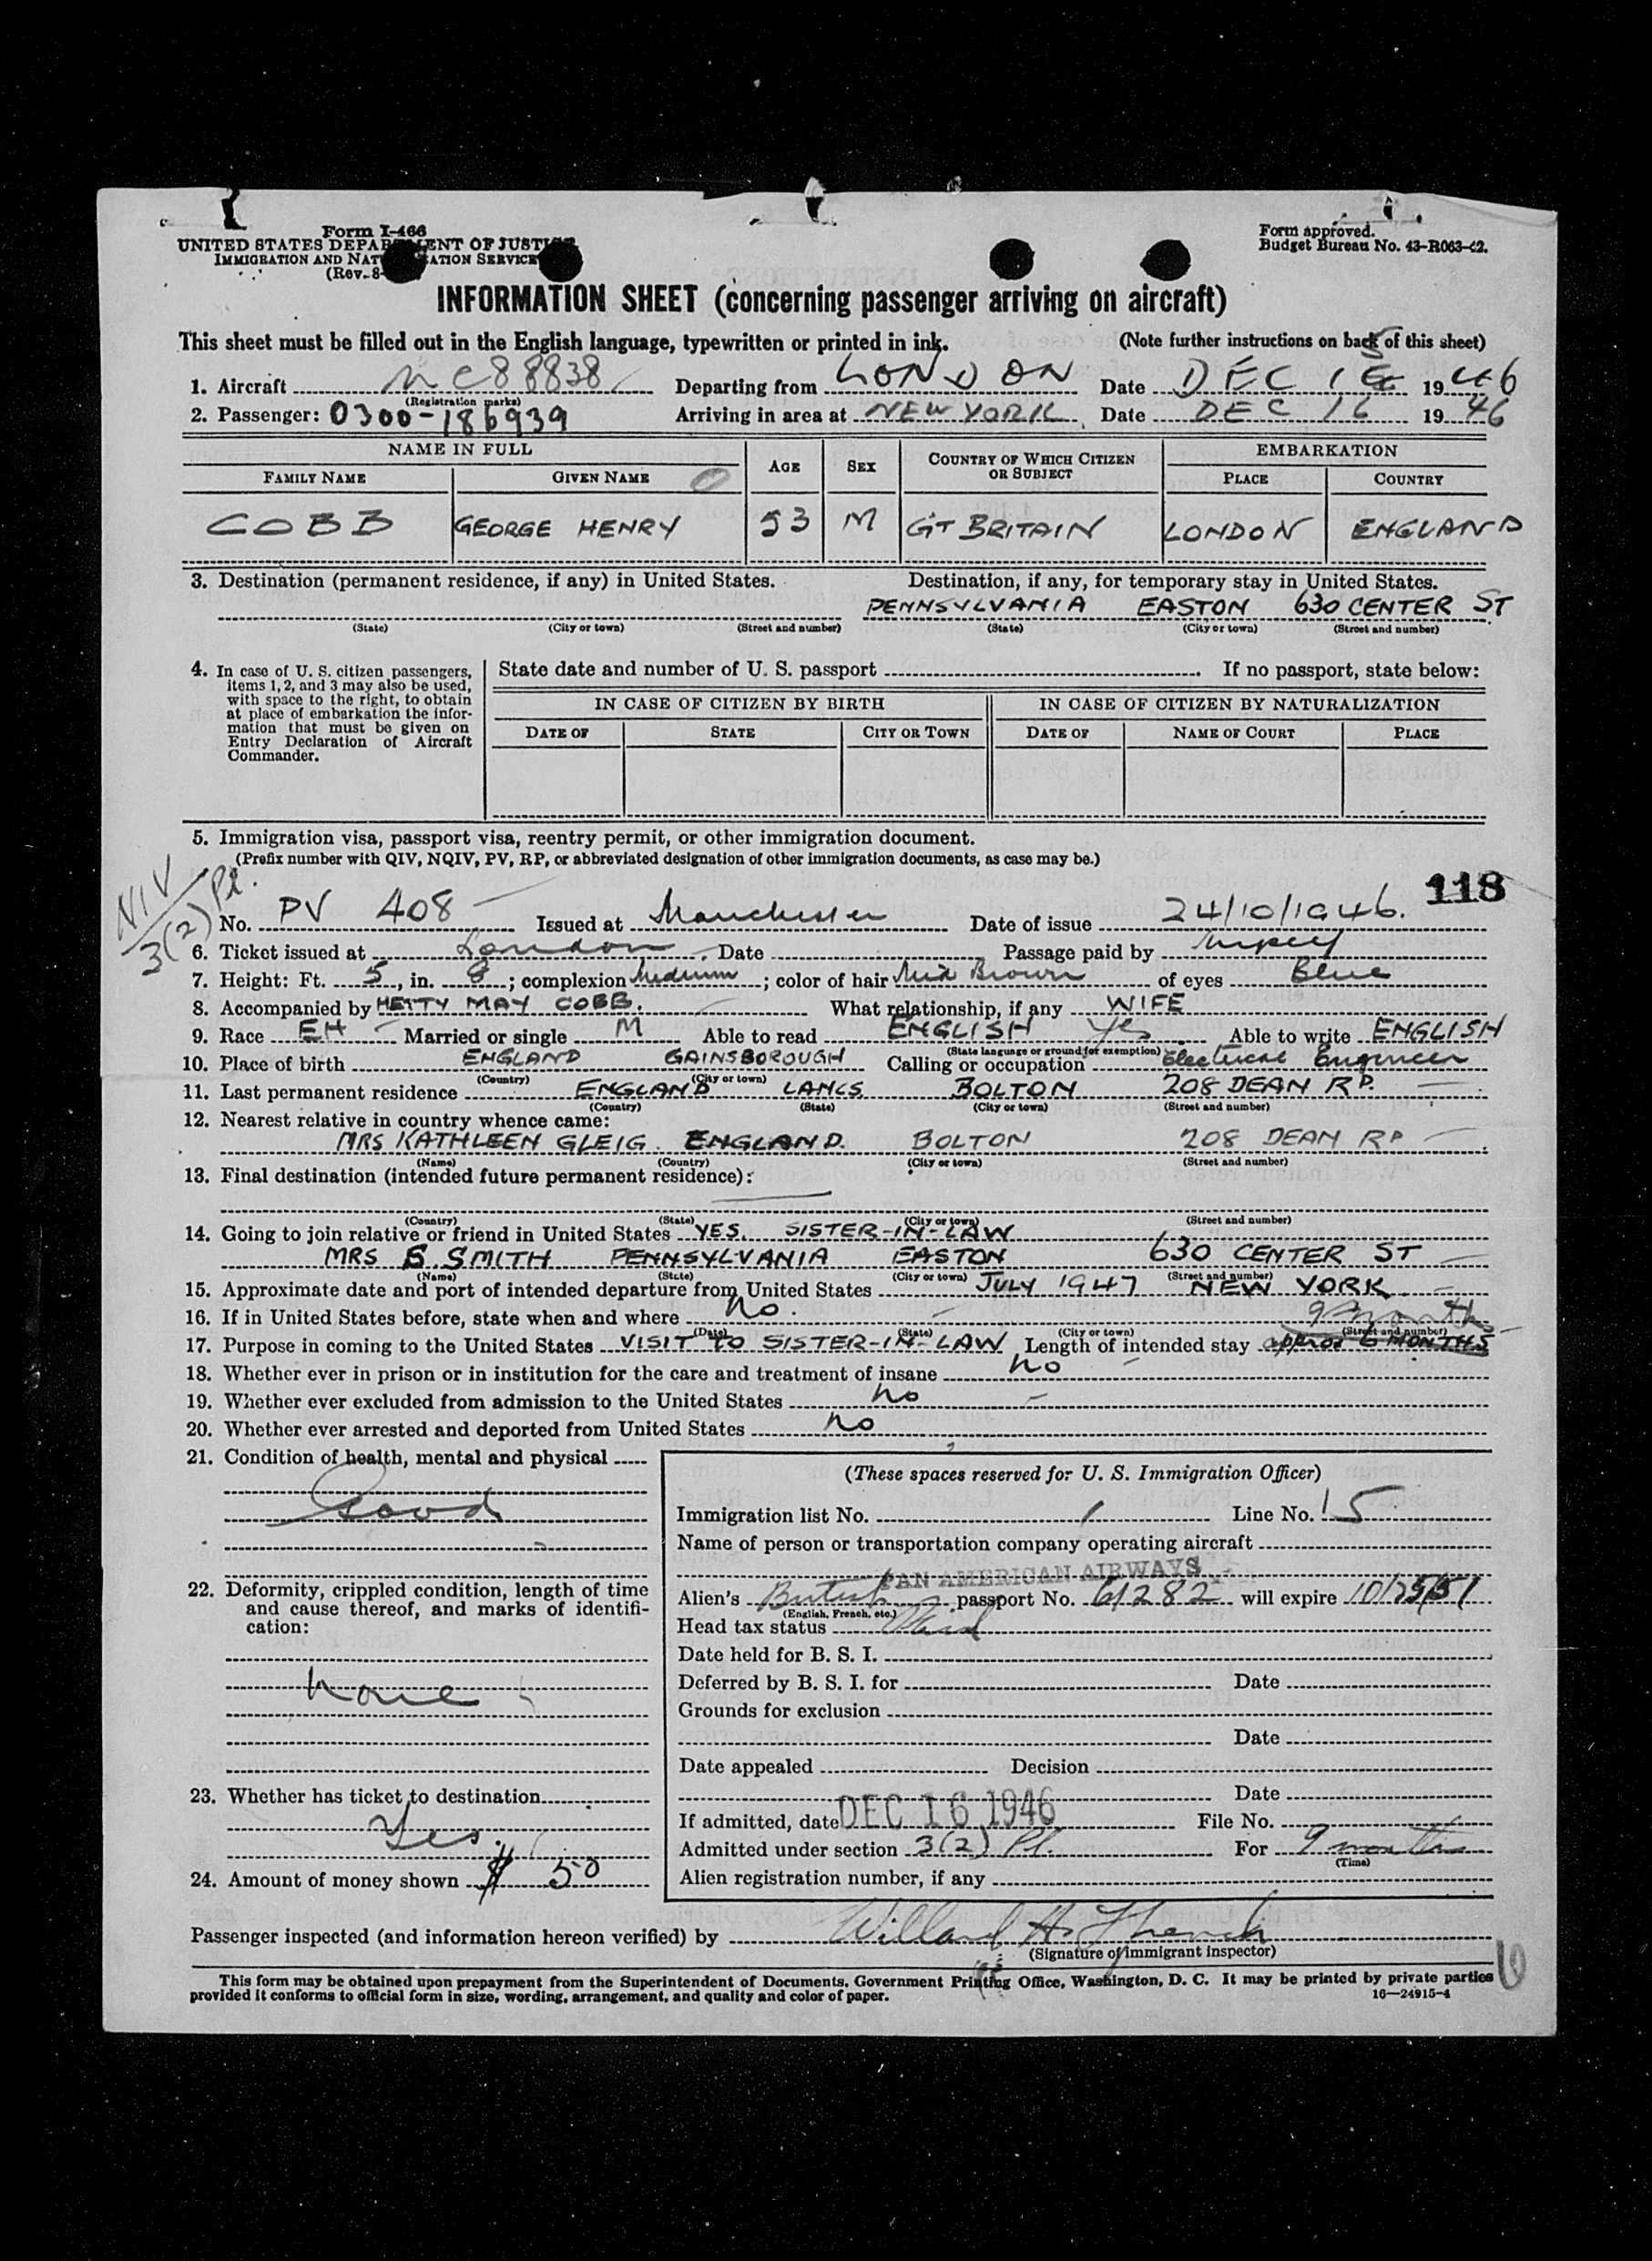 Form I-466
UNITED STATES DEPARTMENT OF JUSTICE
IMMIGRATION AND NATURALIZATION SERVICE
(Rev. 8-
Form approved.
Budget Bureau No. 43-R063-42.
INFORMATION SHEET (concerning passenger arriving on aircraft)
This sheet must be filled out in the English language, typewritten or printed in ink. (Note further instructions on back of this sheet)
1. Aircraft NC88838 Departing from LONDON Date DEC 15 1946
(Registration marks)
2. Passenger: 0300-186939 Arriving in area at NEW YORK Date DEC 16 1946
NAME IN FULL AGE SEX COUNTRY OF WHICH CITIZEN OR SUBJECT EMBARKATION
FAMILY NAME GIVEN NAME PLACE COUNTRY
COBB GEORGE HENRY 53 M GT BRITAIN LONDON ENGLAND
3. Destination (permanent residence, if any) in United States. Destination, if any, for temporary stay in United States.
PENNSYLVANIA EASTON 630 CENTER ST
(State) (City or town) (Street and number) (State) (City or town) (Street and number)
4. In case of U. S. citizen passengers, items 1, 2, and 3 may also be used, with space to the right, to obtain at place of embarkation the information that must be given on Entry Declaration of Aircraft Commander.
State date and number of U. S. passport If no passport, state below:
IN CASE OF CITIZEN BY BIRTH IN CASE OF CITIZEN BY NATURALIZATION
DATE OF STATE CITY OR TOWN DATE OF NAME OF COURT PLACE
5. Immigration visa, passport visa, reentry permit, or other immigration document.
(Prefix number with QIV, NQIV, PV, RP, or abbreviated designation of other immigration documents, as case may be.)
NIV
3(2) Pl.
118
No. PV 408 Issued at Manchester Date of issue 24/10/1946.
6. Ticket issued at London Date Passage paid by myself
7. Height: Ft. 5, in. 8; complexion Medium; color of hair Mid Brown of eyes Blue
8. Accompanied by HETTY MAY COBB. What relationship, if any WIFE
9. Race EH Married or single M Able to read ENGLISH Yes Able to write ENGLISH
(State language or ground for exemption)
10. Place of birth ENGLAND GAINSBOROUGH Calling or occupation Electrical Engineer
(Country) (City or town)
11. Last permanent residence ENGLAND LANCS BOLTON 208 DEAN RD.
(Country) (State) (City or town) (Street and number)
12. Nearest relative in country whence came:
MRS KATHLEEN GLEIG. ENGLAND. BOLTON 208 DEAN RD
(Name) (Country) (City or town) (Street and number)
13. Final destination (intended future permanent residence):
(Country) (State) (City or town) (Street and number)
14. Going to join relative or friend in United States YES. SISTER-IN-LAW
MRS S. SMITH PENNSYLVANIA EASTON 630 CENTER ST
(Name) (State) (City or town) (Street and number)
15. Approximate date and port of intended departure from United States JULY 1947 NEW YORK
16. If in United States before, state when and where No.
(Date) (State) (City or town) (Street and number)
9 months
17. Purpose in coming to the United States VISIT TO SISTER-IN-LAW Length of intended stay approx 6 MONTHS
18. Whether ever in prison or in institution for the care and treatment of insane No
19. Whether ever excluded from admission to the United States No
20. Whether ever arrested and deported from United States No
21. Condition of health, mental and physical
Good
22. Deformity, crippled condition, length of time and cause thereof, and marks of identification:
None
23. Whether has ticket to destination
Yes.
24. Amount of money shown $ 50
(These spaces reserved for U. S. Immigration Officer)
Immigration list No. 1 Line No. 15
Name of person or transportation company operating aircraft
PAN AMERICAN AIRWAYS
Alien's British passport No. 61282 will expire 10/25/51
(English, French, etc.)
Head tax status Paid
Date held for B. S. I.
Deferred by B. S. I. for Date
Grounds for exclusion
Date
Date appealed Decision
Date
If admitted, date DEC 16 1946 File No.
Admitted under section 3(2) Pl. For 9 months
(Time)
Alien registration number, if any
Passenger inspected (and information hereon verified) by Willard H.
(Signature of immigrant inspector)
This form may be obtained upon prepayment from the Superintendent of Documents, Government Printing Office, Washington, D. C. It may be printed by private parties
provided it conforms to official form in size, wording, arrangement, and quality and color of paper. 16—24915-4